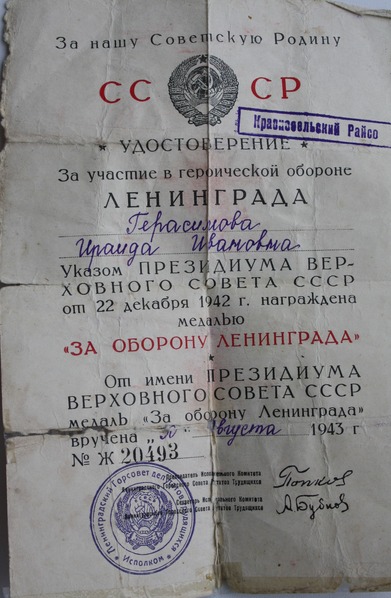 За нашу Советскую Родину
СС СР
Красносельский Райсо
★ УДОСТОВЕРЕНИЕ ★
За участие в героической обороне
ЛЕНИНГРАДА
Герасимова
Ираида Ивановна
Указом ПРЕЗИДИУМА ВЕР-
ХОВНОГО СОВЕТА СССР
от 22 декабря 1942 г. награждена
медалью
«ЗА ОБОРОНУ ЛЕНИНГРАДА»
★
От имени ПРЕЗИДИУМА
ВЕРХОВНОГО СОВЕТА СССР
медаль «За оборону Ленинграда»
вручена „ “ августа 1943 г
№ Ж 20493
Председатель Исполнительного Комитета
Ленинградского Городского Совета депутатов Трудящихся
Попков
Секретарь Исполнительного Комитета
Ленинградского Городского Совета депутатов Трудящихся
А Бубнов
Ленинградский Горсовет депутатов трудящихся
Исполком